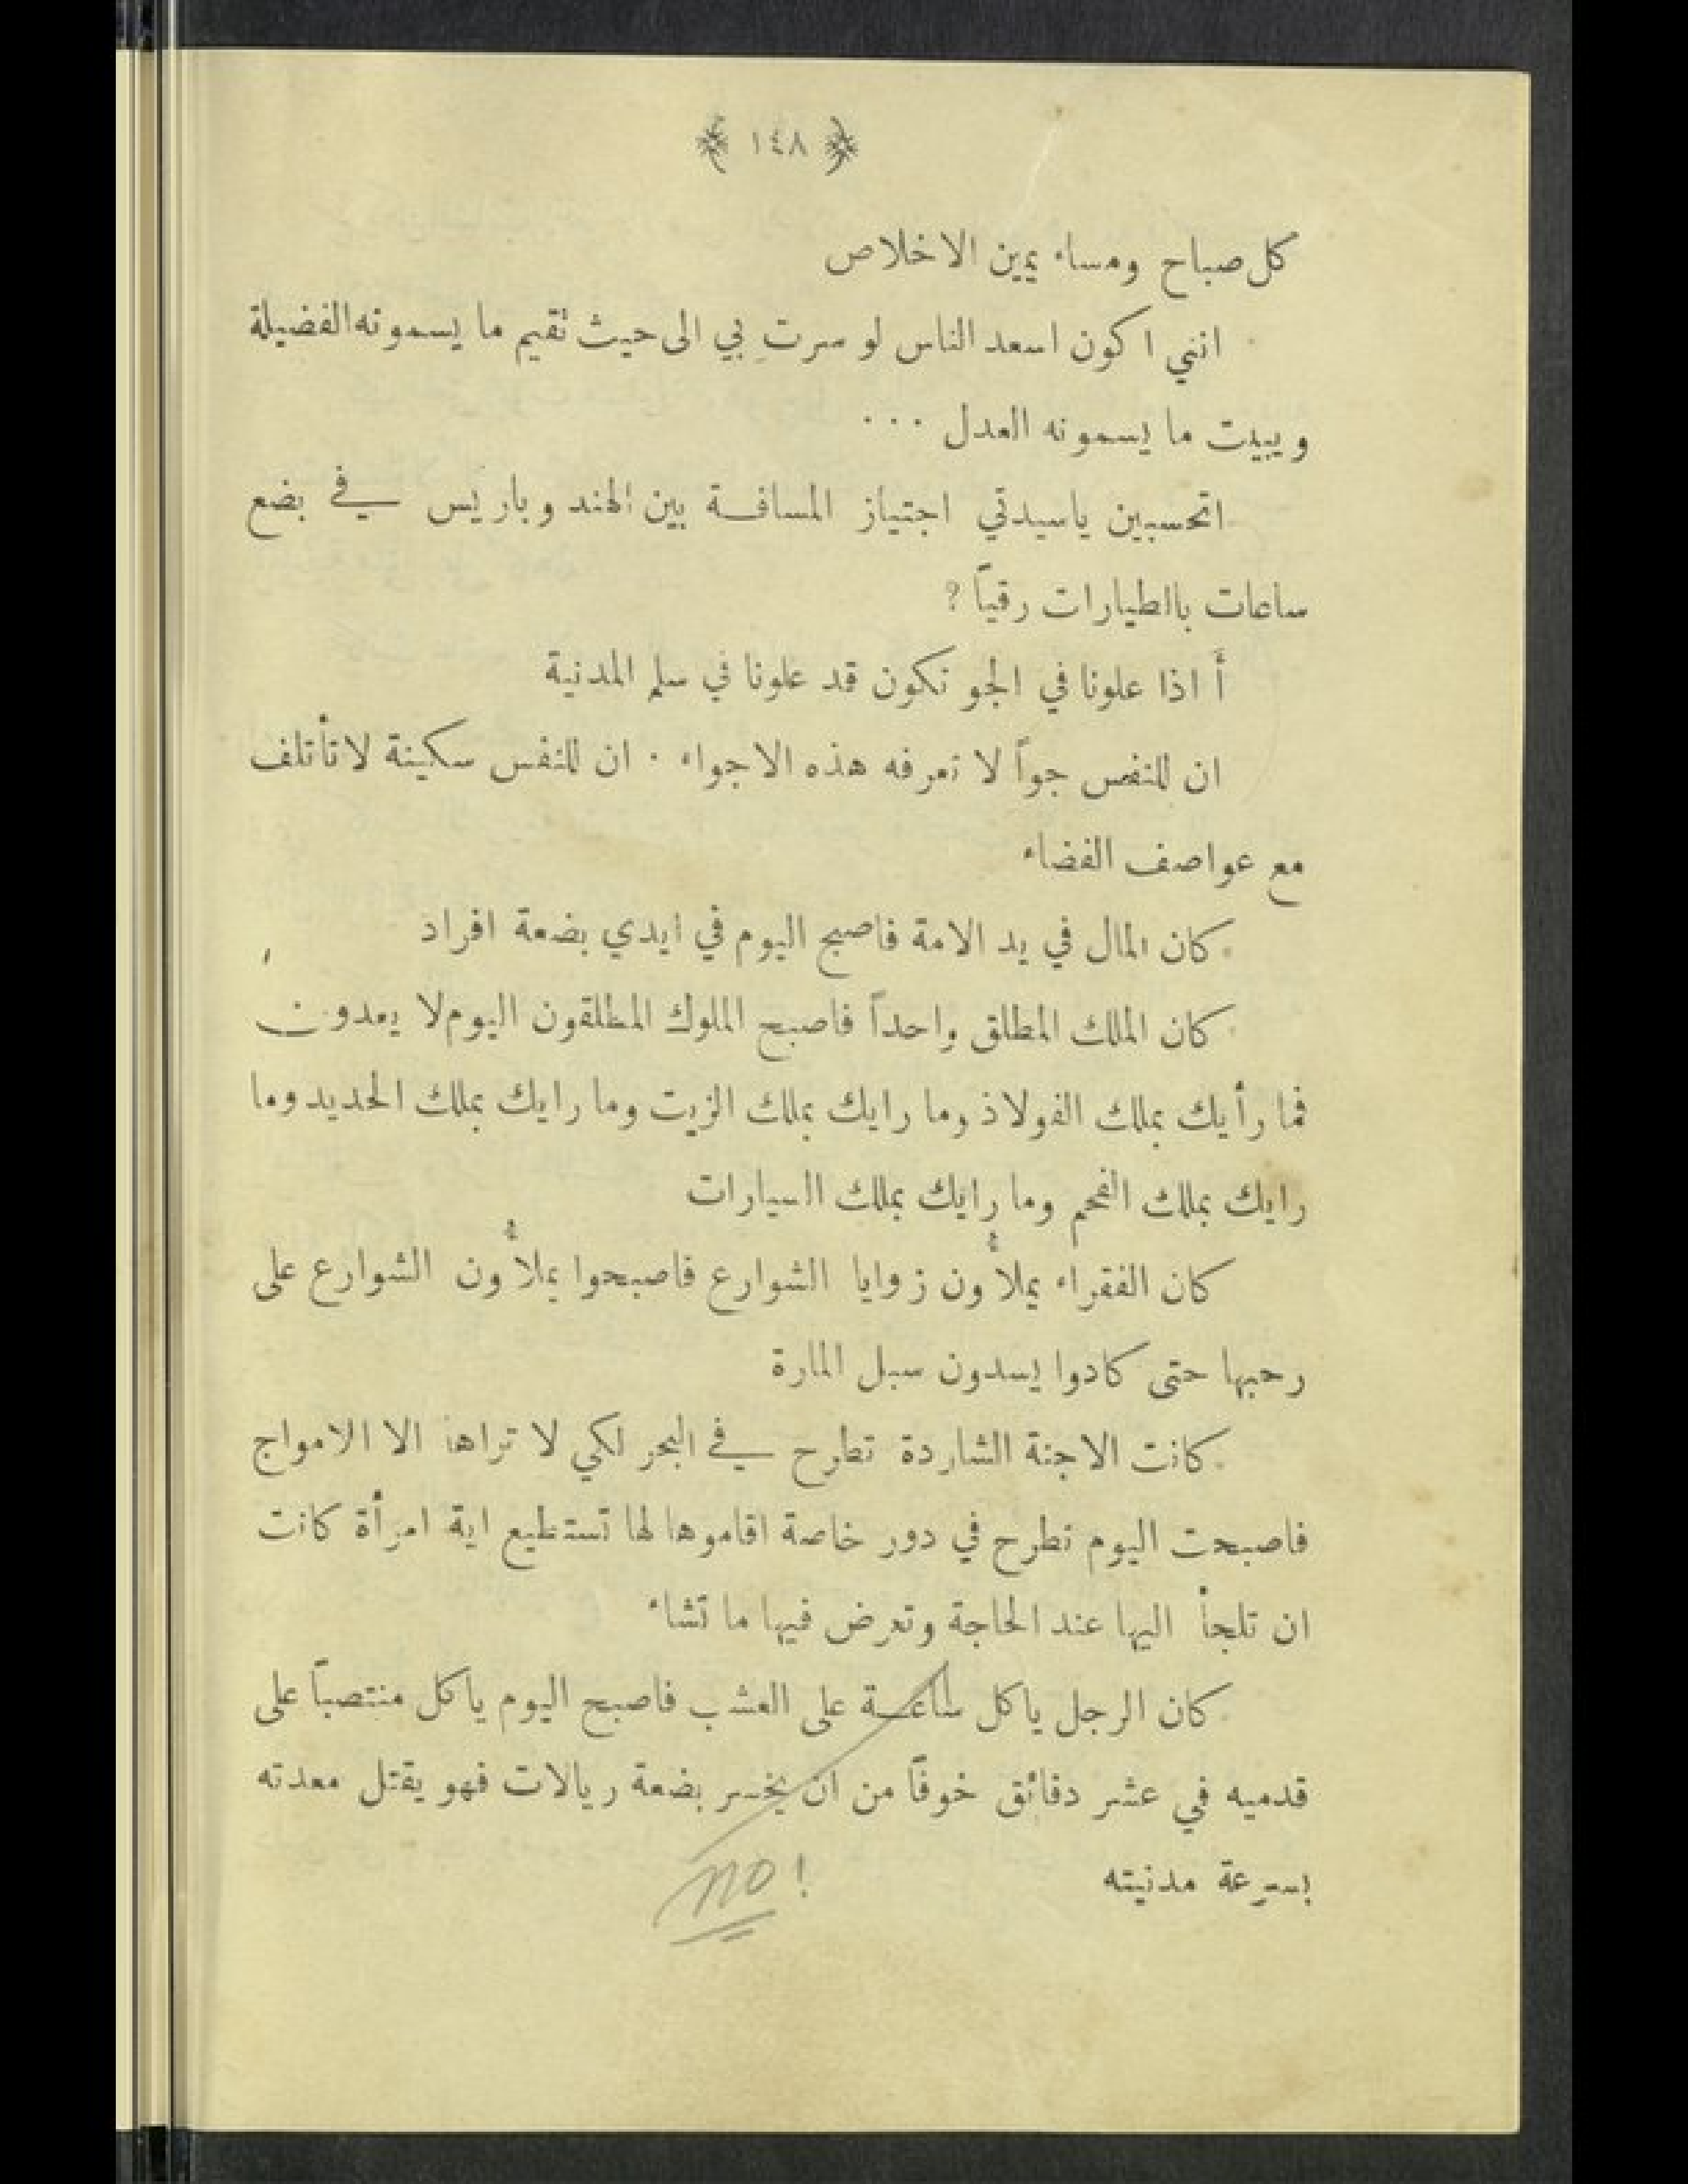 ﴿ ١٤٨ ﴾
كل صباح ومساء يمين الاخلاص
انني اكون اسعد الناس لو سرتِ بي الى حيث تقيم ما يسمونه الفضيلة
ويبيت ما يسمونه العدل ...
اتحسبين ياسيدتي اجتياز المسافة بين الهند وباريس في بضع
ساعات بالطيارات رقياً ?
أ اذا علونا في الجو نكون قد علونا في سلم المدنية
ان للنفس جواً لا تعرفه هذه الاجواء . ان للنفس سكينة لا تأتلف
مع عواصف الفضاء
كان المال في يد الامة فاصبح اليوم في ايدي بضعة افراد
كان الملك المطلق واحداً فاصبح الملوك المطلقون اليوم لا يعدون
فما رأيك بملك الفولاذ وما رايك بملك الزيت وما رايك بملك الحديد وما
رايك بملك الفحم وما رايك بملك السيارات
كان الفقراء يملأون زوايا الشوارع فاصبحوا يملأون الشوارع على
رحبها حتى كادوا يسدون سبل المارة
كانت الاجنة الشاردة تطرح في البحر لكي لا تراها الا الامواج
فاصبحت اليوم تطرح في دور خاصة اقاموها لها تستطيع اية امرأة كانت
ان تلجأ اليها عند الحاجة وتعرض فيها ما تشاء
كان الرجل ياكل ساعة على العشب فاصبح اليوم ياكل منتصباً على
قدميه في عشر دقائق خوفاً من ان يخسر بضعة ريالات فهو يقتل معدته
بسرعة مدنيته
no!